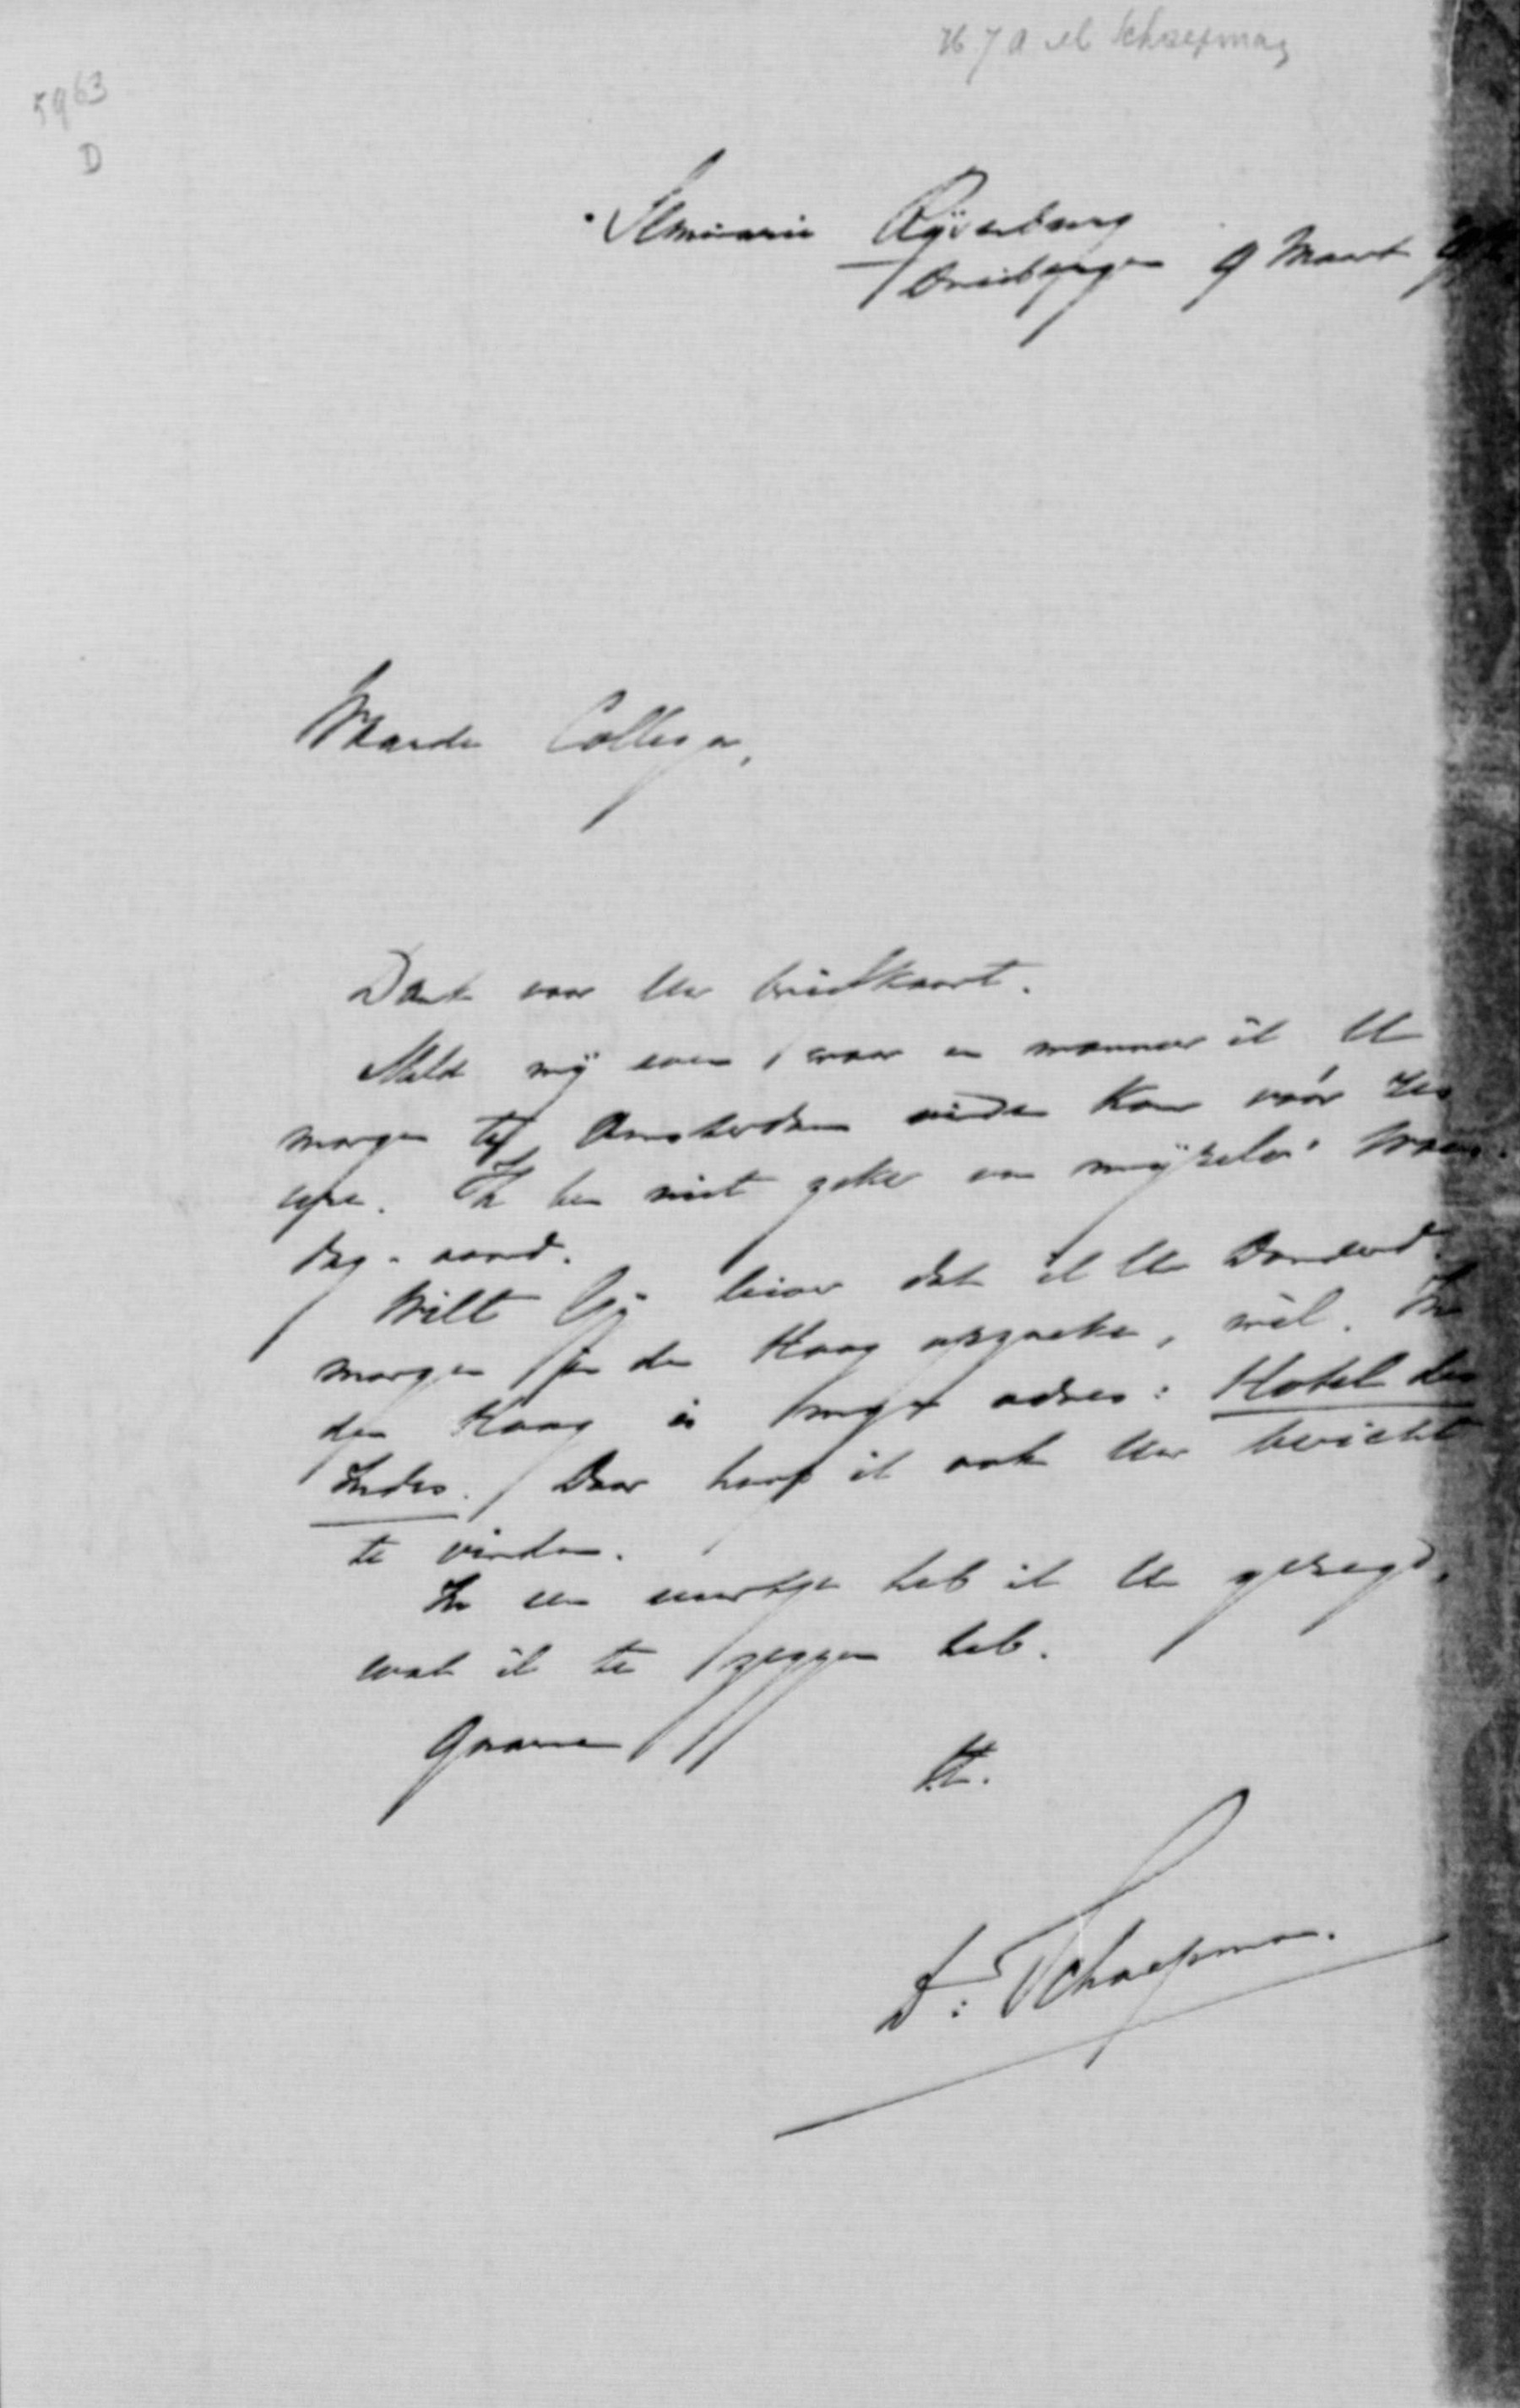 H J A M Schaepman
5963
D
Seminarie Rijsenburg
Driebergen 9 Maart
Waarde Collega,
Dank voor Uw briefkaart.
Meld mij even waar en wanneer ik U
morgen te Amsterdam vinden kan vóór zes
ure. Ik ben niet zeker van mijzelv' Woens-
dag-avond.
Wilt Gij liever dat ik U Donderd.
morgen in den Haag opzoeke, wèl. In
den Haag is mijn adres: Hotel des
Indes. Daar hoop ik ook Uw bericht
te vinden.
In een uurtje heb ik U gezegd,
wat ik te zeggen heb.
Gaarne
tt.
Dr. Schaepman.